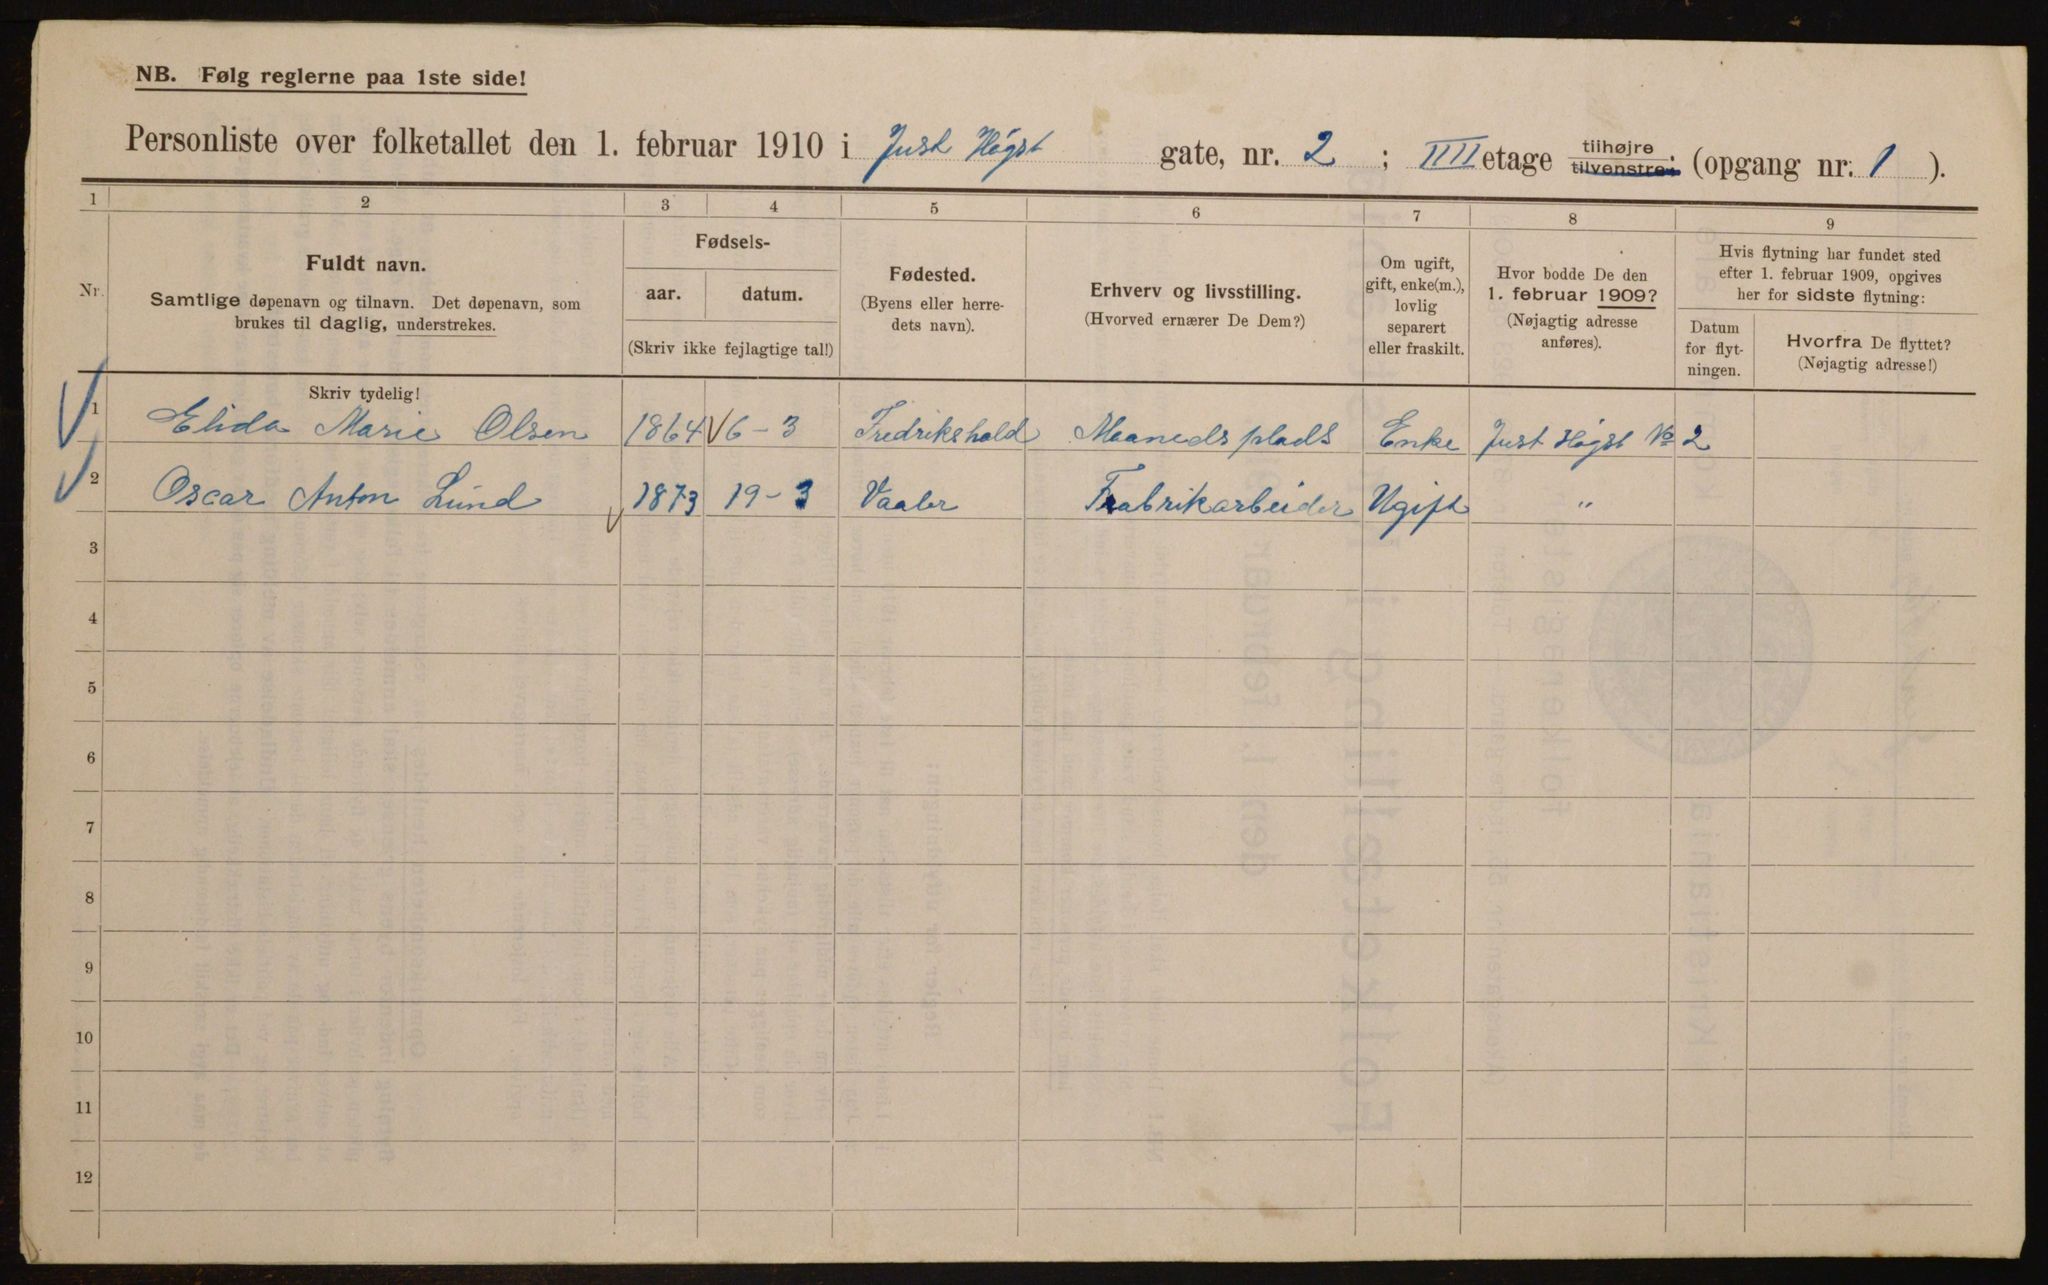 NB. Følg reglerne paa 1ste side!
Personliste over folketallet den 1. februar 1910 i Just Høgst gate, nr. 2 ; IIII etage tilhøjre tilvenstre: (opgang nr. 1 ).
1 2 3 4 5 6 7 8 9
Nr.
Fuldt navn.
Samtlige døpenavn og tilnavn. Det døpenavn, som
brukes til daglig, understrekes.
Skriv tydelig!
Fødsels-
aar. datum.
(Skriv ikke fejlagtige tal!)
Fødested.
(Byens eller herre-
dets navn).
Erhverv og livsstilling.
(Hvorved ernærer De Dem?)
Om ugift,
gift, enke(m.),
lovlig
separert
eller fraskilt.
Hvor bodde De den
1. februar 1909?
(Nøjagtig adresse
anføres).
Hvis flytning har fundet sted
efter 1. februar 1909, opgives
her for sidste flytning:
Datum
for flyt-
ningen.
Hvorfra De flyttet?
(Nøjagtig adresse!)
1 Elida Marie Olsen 1864 6-3 Fredrikshald Maaneds plads Enke Just Høgst No 2
2 Oscar Anton Lund 1873 19-3 Vaaler Fabrikarbeider Ugift "
3
4
5
6
7
8
9
10
11
12